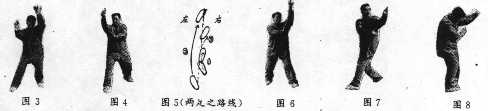 左 右
图 3
图 4
图 5(两点之路线)
图 6
图 7
图 8